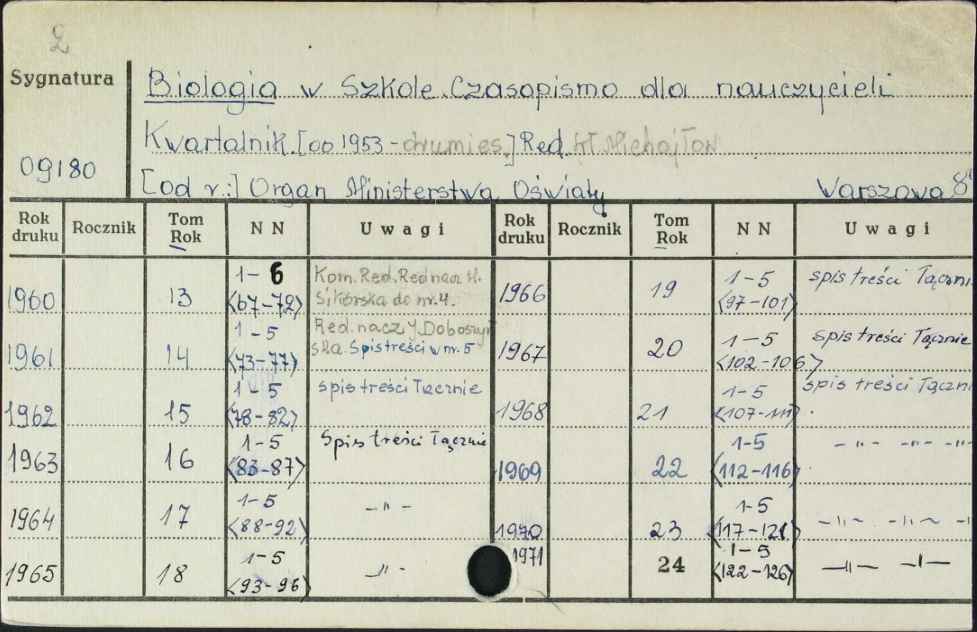 2
Sygnatura
Biologia w Szkole. Czasopismo dla nauczycieli
Kwartalnik. [od 1953 - dwumies.] Red. Wł. Michajłow
09180
[od r.:] Organ Ministerstwa Oświaty Warszawa 8°
Rok druku Rocznik Tom Rok NN Uwagi Rok druku Rocznik Tom Rok NN Uwagi
1960 13 1-6 <67-72> Kom. Red. Red nacz. H. Sikorska do nr. 4. 1966 19 1-5 <97-101> spis treści łączni
1961 14 1-5 <73-77> Red. nacz. Y. Doboszyńska. Spis treści w nr. 5 1967 20 1-5 <102-106> spis treści łącznie
1962 15 1-5 <78-82> spis treści łącznie 1968 21 1-5 <107-111> spis treści łączni
1963 16 1-5 <83-87> Spis treści łącznie 1969 22 1-5 <112-116> -"- -"- -"-
1964 17 1-5 <88-92> -"- 1970 23 1-5 <117-121> -"- -"- -"-
1965 18 1-5 <93-96> -"- 1971 24 1-5 <122-126> -"- -"-